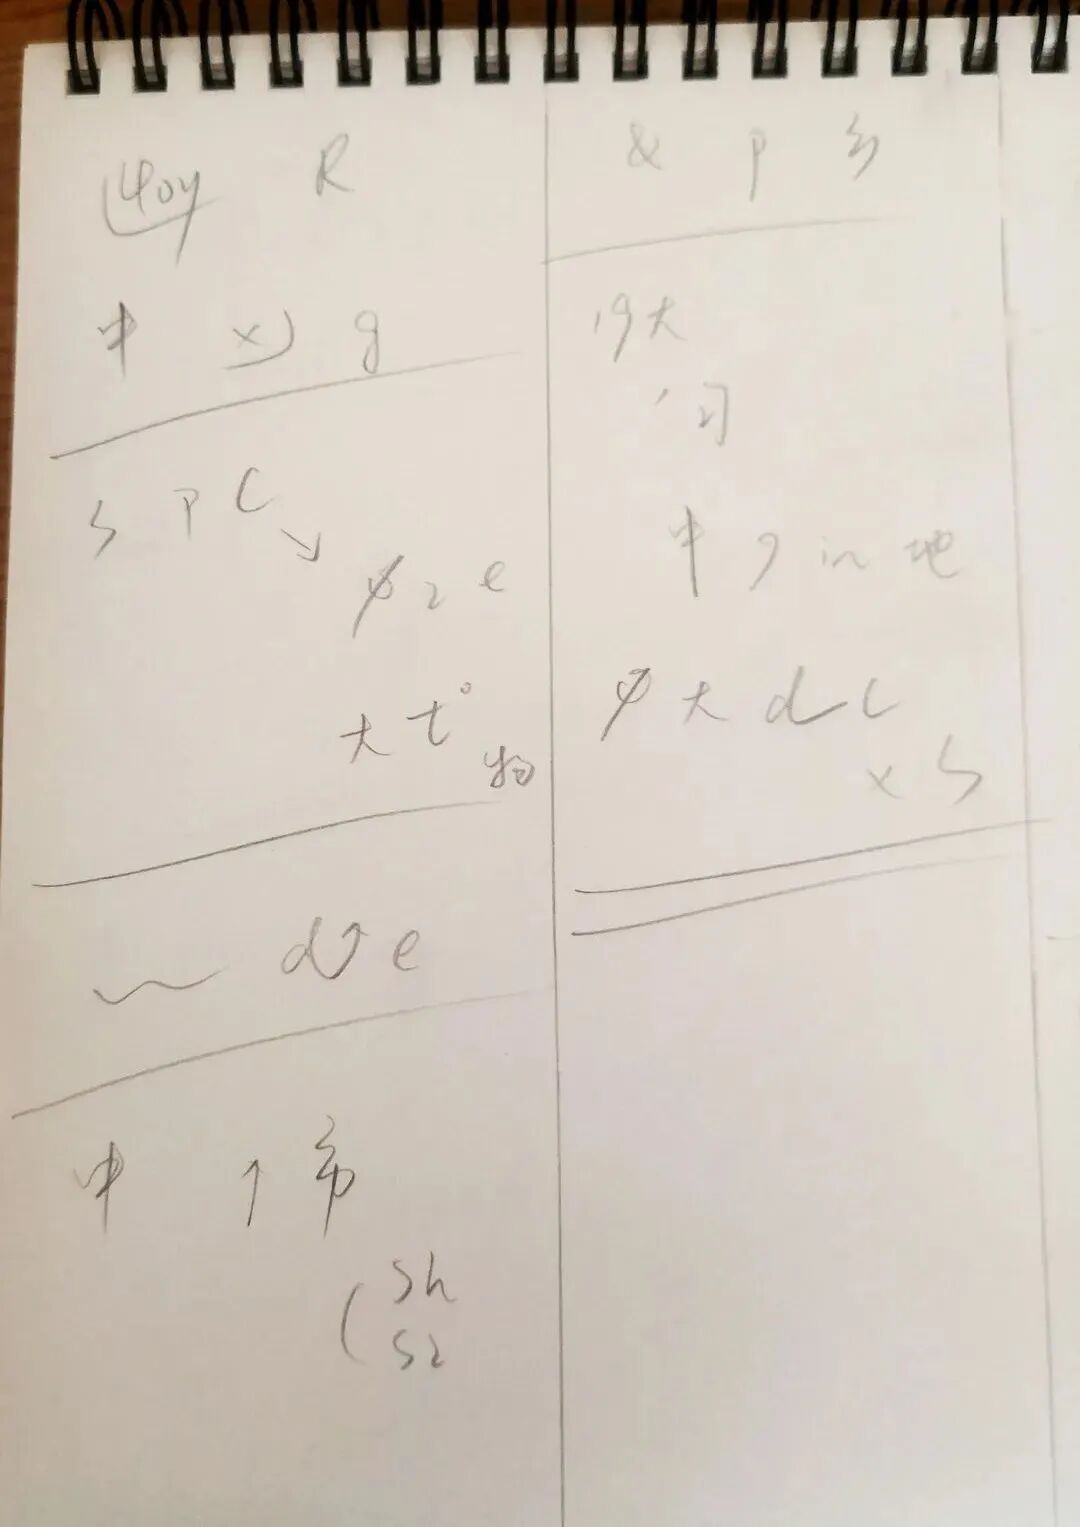 40y R
中 x g
S P C
↘
2 e
大 t°
物
d e
中 ↑ 币
( Sh
S2
& P 乡
19大
习
中 in 地
大 d C
x S